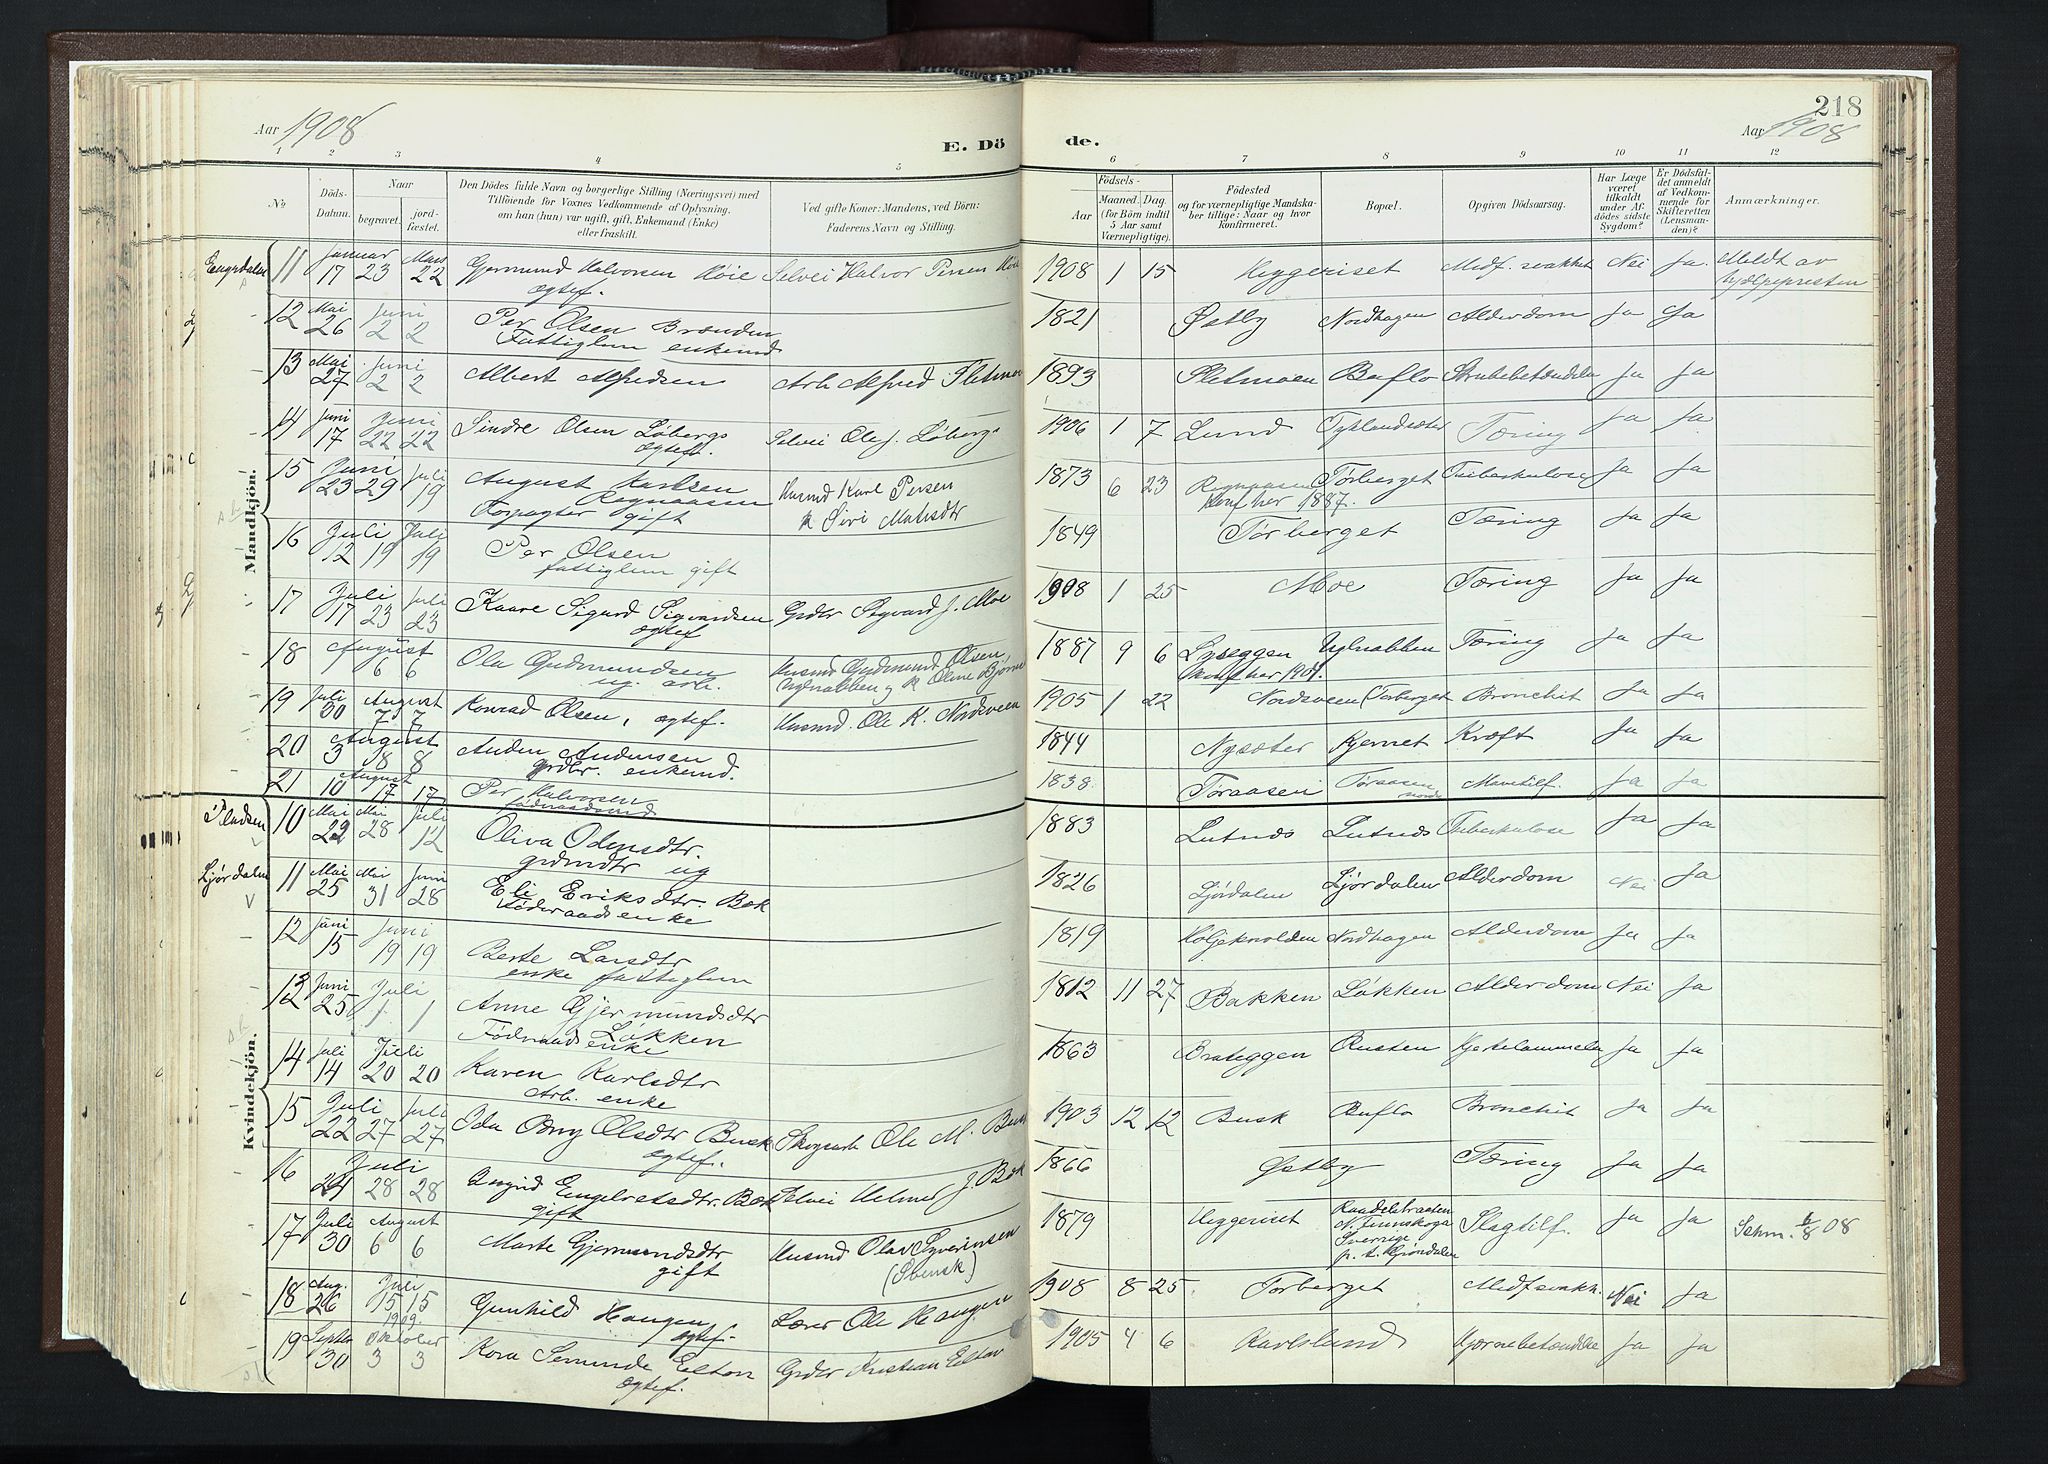 218
Aar 1908
E. Dö
de.
Aar 1908
1 2 3 4 5 6 7 8 9 10 11 12
No
Döds-Datum.
Naar
begravet.
jord-fæstet.
Den Dödes fulde Navn og borgerlige Stilling (Næringsvei) med
Tilföiende for Voxnes Vedkommende af Oplysning,
om han (hun) var ugift, gift, Enkemand (Enke)
eller fraskilt.
Ved gifte Koner: Mandens, ved Börn:
Faderens Navn og Stilling.
Födsels-
Aar
Maaned. Dag.
(for Börn indtil
5 Aar samt
Værnepligtige).
Födested
og for værnepligtige Mandska-
ber tillige: Naar og hvor
konfirmeret.
Bopæl.
Opgiven Dödsaarsag.
Har Læge
været
tilkaldt
under Af-
dödes sidste
Sygdom?
Er Dödsfal-
det anmeldt
af Vedkom-
mende for
Skifteretten
(Lensman-
den)?
Anmærkninger.
Engerdalen
Mandkjön.
11 Januar 17 23 Mars 22 Gjermund Halvorsen Høie Selvei Halvor Persen 1908 1 15 Heggeriset Medf. svakhet Nei Ja Meldt av
ægtef. hjælpepresten
12 Mai 26 Juni 2 2 Per Olsen Brænden 1821 Østby Nordhagen Alderdom Ja Ja
Fattiglem enkemd
13 Mai 27 Juni 2 2 Albert Alfredsen Arb. Alfred Sletmoen 1893 Sletmoen Ja Ja
14 Juni 17 Juni 22 22 Sindre Olsen Løberg Selvei Ole J. Løberg 1906 1 7 Lund Tæring Ja Ja
ægtef.
15 Juni 23 29 Juli 19 August Karlsen Husmd Karl Persen 1873 6 23 Regnaasen Tørberget Tuberkulose Ja Ja
Regnaasen gift k Siri Matisdtr Konf her 1887.
16 Juli 12 19 Juli 19 Per Olsen 1849 Tørberget Tæring Ja Ja
fattiglem gift
17 Juli 17 23 Juli 23 Kaare Sigurd Sigvardsen Grdbr Sigvard J. Moe 1908 1 25 Moe Tæring Ja Ja
ægtef
18 August 6 6 Ola Gudmundsen Husmd Gudmund Olsen 1887 9 6 Lyseggen Uglnabben Tæring Ja Ja
ug. arb. Uglnabben og k Oline Konf her 1901.
19 Juli 30 August 7 7 Konrad Olsen, ægtef. Husmd. Ole K. Nordsveen 1905 1 22 Nordsveen Tørberget Bronchit Ja Ja
20 3 August 8 8 Anden Andersen 1844 Nysæter Kjernet Kræft Ja Ja
Grdbr. enkemd.
21 10 August 17 17 Per Halvorsen 1838 Toraasen Toraasen Mavetilf. Ja Ja
Pladsen
Ljørdalen
Kvindekjön.
10 Mai 22 Mai 28 Juli 12 Oliva Odensdtr. 1883 Lutnes Lutnes Tuberkulose Ja Ja
grdmdtr ug
11 Mai 25 Mai 31 Juni 28 Eli Eriksdtr. Bæk 1826 Ljørdalen Ljørdalen Alderdom Nei Ja
Føderaadsenke
12 Juni 15 Juni 19 19 Berte Larsdtr 1819 Nordhagen Alderdom Ja Ja
enke fattiglem
13 Juni 25 Juli 1 1 Anne Gjermundsdtr 1812 11 27 Bakken Løkken Alderdom Nei Ja
Løkken
Føderaadsenke
14 Juli 14 Juli 20 20 Karen Karlsdtr 1863 Brateggen Rusten Ja Ja
Arb. enke
15 Juli 22 27 Juli 27 Ida Olsdtr Busk Skogsarb Ole M. Busk 1903 12 12 Busk Buflo Bronchit Ja Ja
ægtef.
16 24 Juli 28 28 Ingrid Engebretsdtr. Bæk Selvei Helmer J. Bæk 1866 Østby Tæring Ja Ja
gift
17 Juli 30 August 6 6 Marte Gjermundsdtr Husmd Olav Syverinsen 1879 Heggeriset N. Finnskoga Slagtilf. Ja Ja Schm. 6/8 08
gift (Svensk) Sverige
18 Aug. 26 Juli 15 15 1909. Gunhild Haugen Lærer Ole Haugen 1908 8 25 Tørberget Medf svakh. Nei Ja
ægtef.
19 Septbr 30 Oktober 3 3 Kora Seminde Elton Grdbr Kristian Eltor 1905 4 6 Karlslund Hjernebetændelse Ja Ja
ægtef.